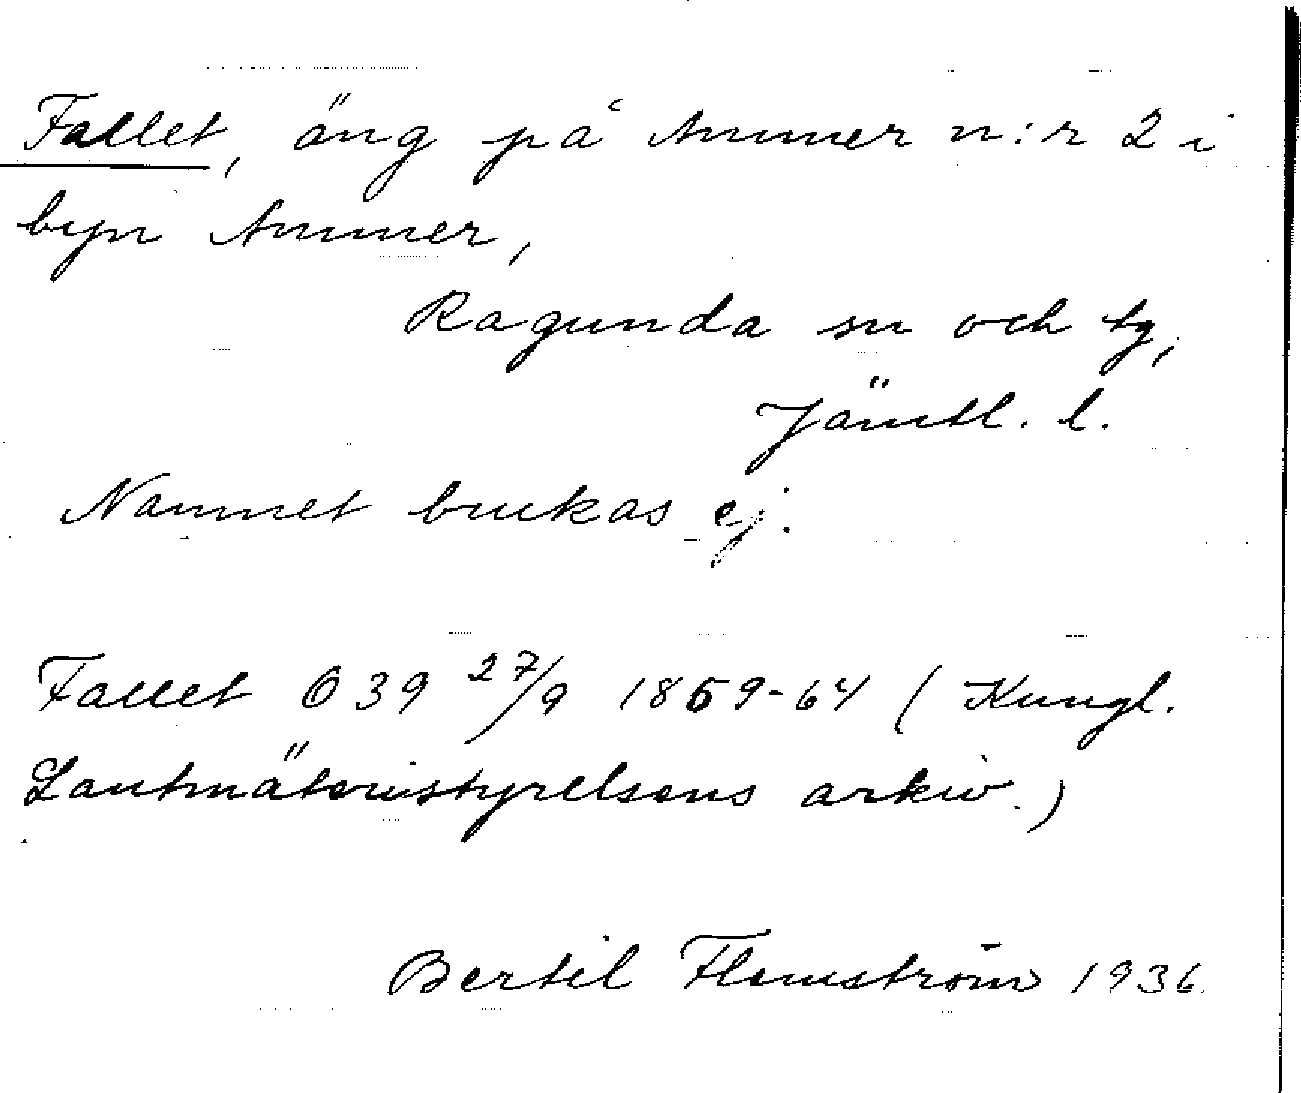 Fallet, äng på Ammer n:r 2 i
byn Ammer,
Ragunda sn och tg,
Jämtl. l.
Namnet brukas ej.
Fallet O 39 27/9 1859-64 (Kungl.
Lantmäteristyrelsens arkiv.)
Bertil Flemström 1936